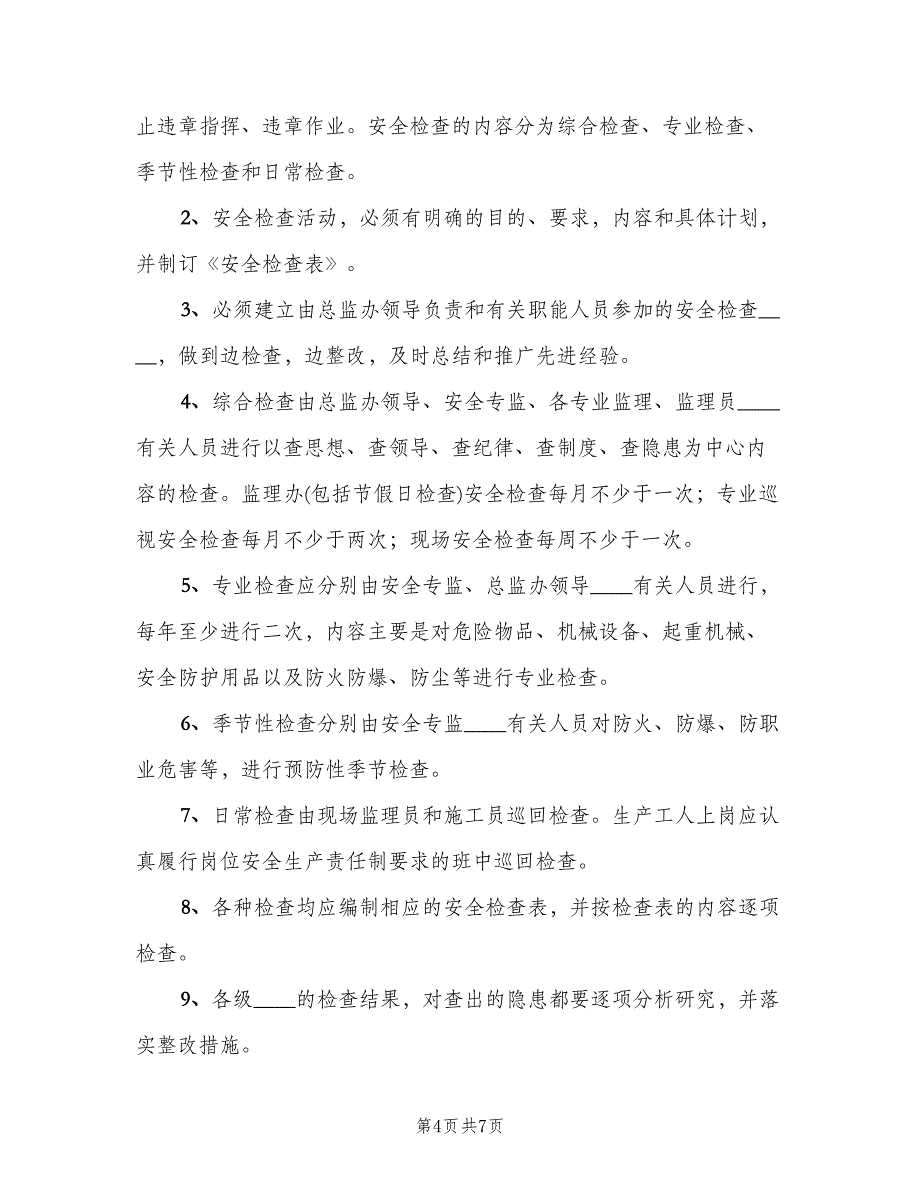 止违章指挥、违章作业。安全检查的内容分为综合检查、专业检查、
季节性检查和日常检查。
2、安全检查活动，必须有明确的目的、要求，内容和具体计划，
并制订《安全检查表》。
3、必须建立由总监办领导负责和有关职能人员参加的安全检查__
__，做到边检查，边整改，及时总结和推广先进经验。
4、综合检查由总监办领导、安全专监、各专业监理、监理员____
有关人员进行以查思想、查领导、查纪律、查制度、查隐患为中心内
容的检查。监理办(包括节假日检查)安全检查每月不少于一次；专业巡
视安全检查每月不少于两次；现场安全检查每周不少于一次。
5、专业检查应分别由安全专监、总监办领导____有关人员进行，
每年至少进行二次，内容主要是对危险物品、机械设备、起重机械、
安全防护用品以及防火防爆、防尘等进行专业检查。
6、季节性检查分别由安全专监____有关人员对防火、防爆、防职
业危害等，进行预防性季节检查。
7、日常检查由现场监理员和施工员巡回检查。生产工人上岗应认
真履行岗位安全生产责任制要求的班中巡回检查。
8、各种检查均应编制相应的安全检查表，并按检查表的内容逐项
检查。
9、各级____的检查结果，对查出的隐患都要逐项分析研究，并落
实整改措施。
第4页共7页